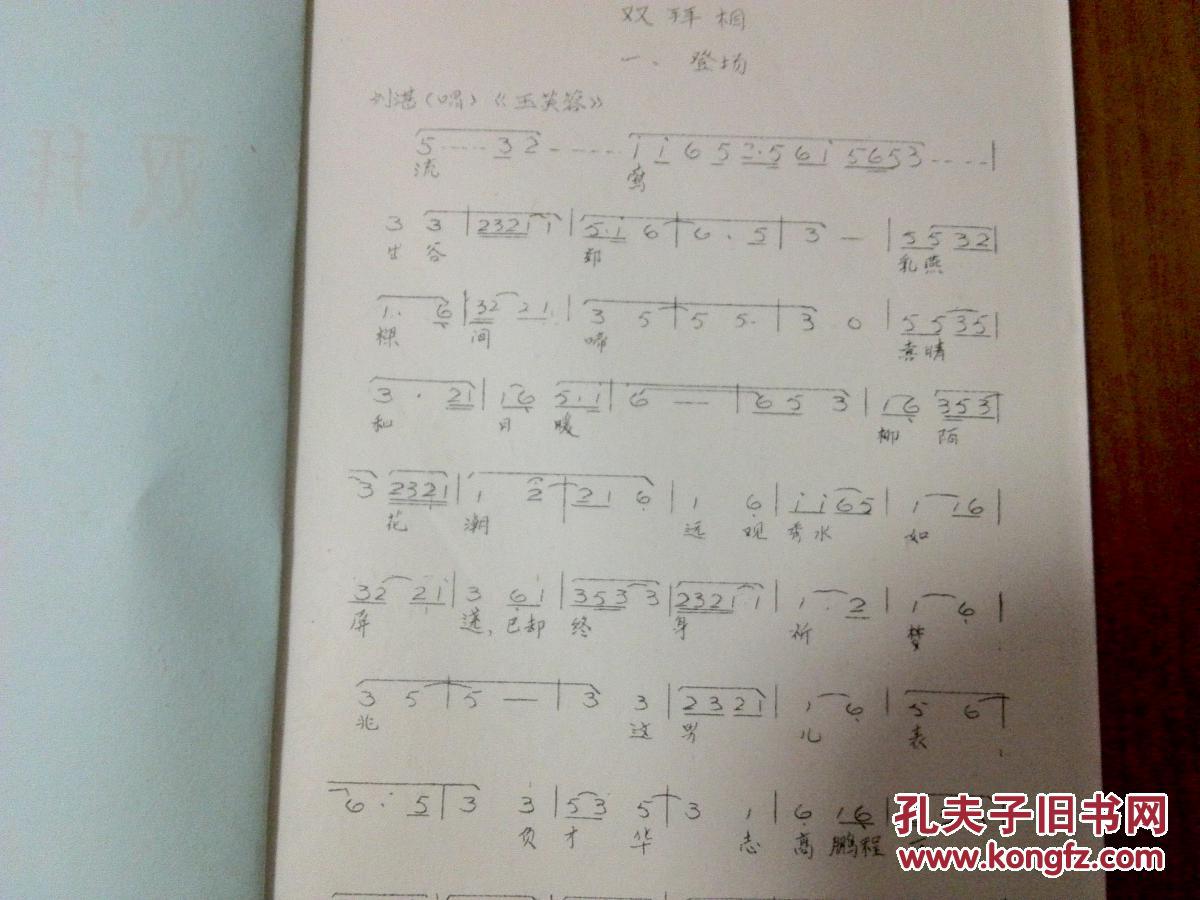 双拜相
一、登场
刘湛(唱)《玉芙蓉》
5····32-----i i 6 5 3·5 6 i 5653----|
流 莺
3 3 | 2321 1 | 5·i 6 | 6·5 | 3 — | 5532 |
出谷 郊 乳燕
1· 6 | 32 21 | 3 5 | 5 5· | 3 0 | 5535 |
樑 间 啼 喜晴
3 · 21 | 16 5·i | 6 — — | 65 3 | 16 353 |
和 日 暖 柳 陌
3 2321 | 1 2 | 21 6 | 1 6 | i i 65 | 1 16 |
花 潮 远 观 秀水 如
32 21 | 3 61 | 353 3 | 2321 1 | 1·2 | 1 6 |
屏 送,已却 终 身 祈 梦
3 5 | 5 — | 3 3 | 2321 | 1 6 | 5 6 |
兆 这 男 儿 表
6· 5 | 3 3 | 53 5 | 3 1 | 6 16 |
负 才 华 志 高 鹏程 一
孔夫子旧书网
www.kongfz.com
双拜